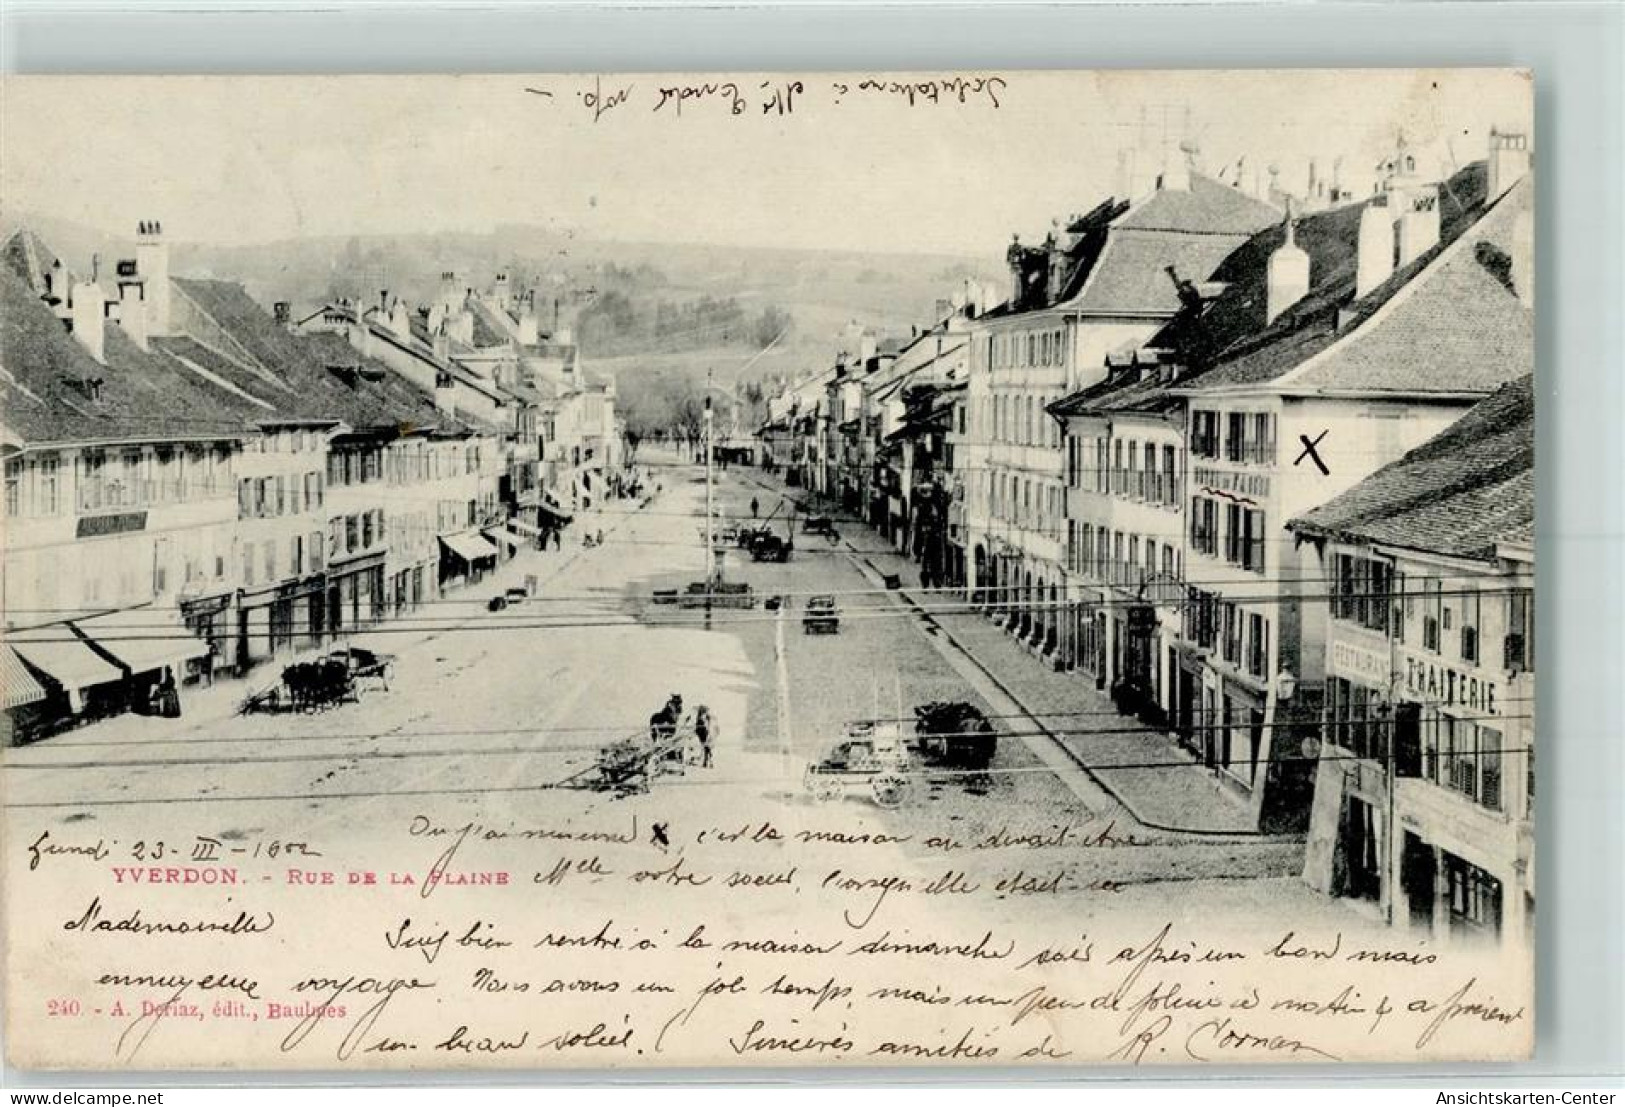 Salutations à Mr
RESTAURANT
TRAITERIE.
Lundi 23 - III - 1902
Où j'ai mis une X, c'est la maison où devait être
YVERDON. - RUE DE LA PLAINE
Mlle votre soeur, lorsqu'elle était ici
Mademoiselle
Suis bien rentré à la maison dimanche soir après un bon mais
ennuyeux voyage. Nous avons un joli temps, mais un peu de pluie ce matin & à présent
240 - A. Deriaz, édit., Baulmes
un beau soleil. Sincères amitiés de R.
www.delcampe.net
Ansichtskarten-Center